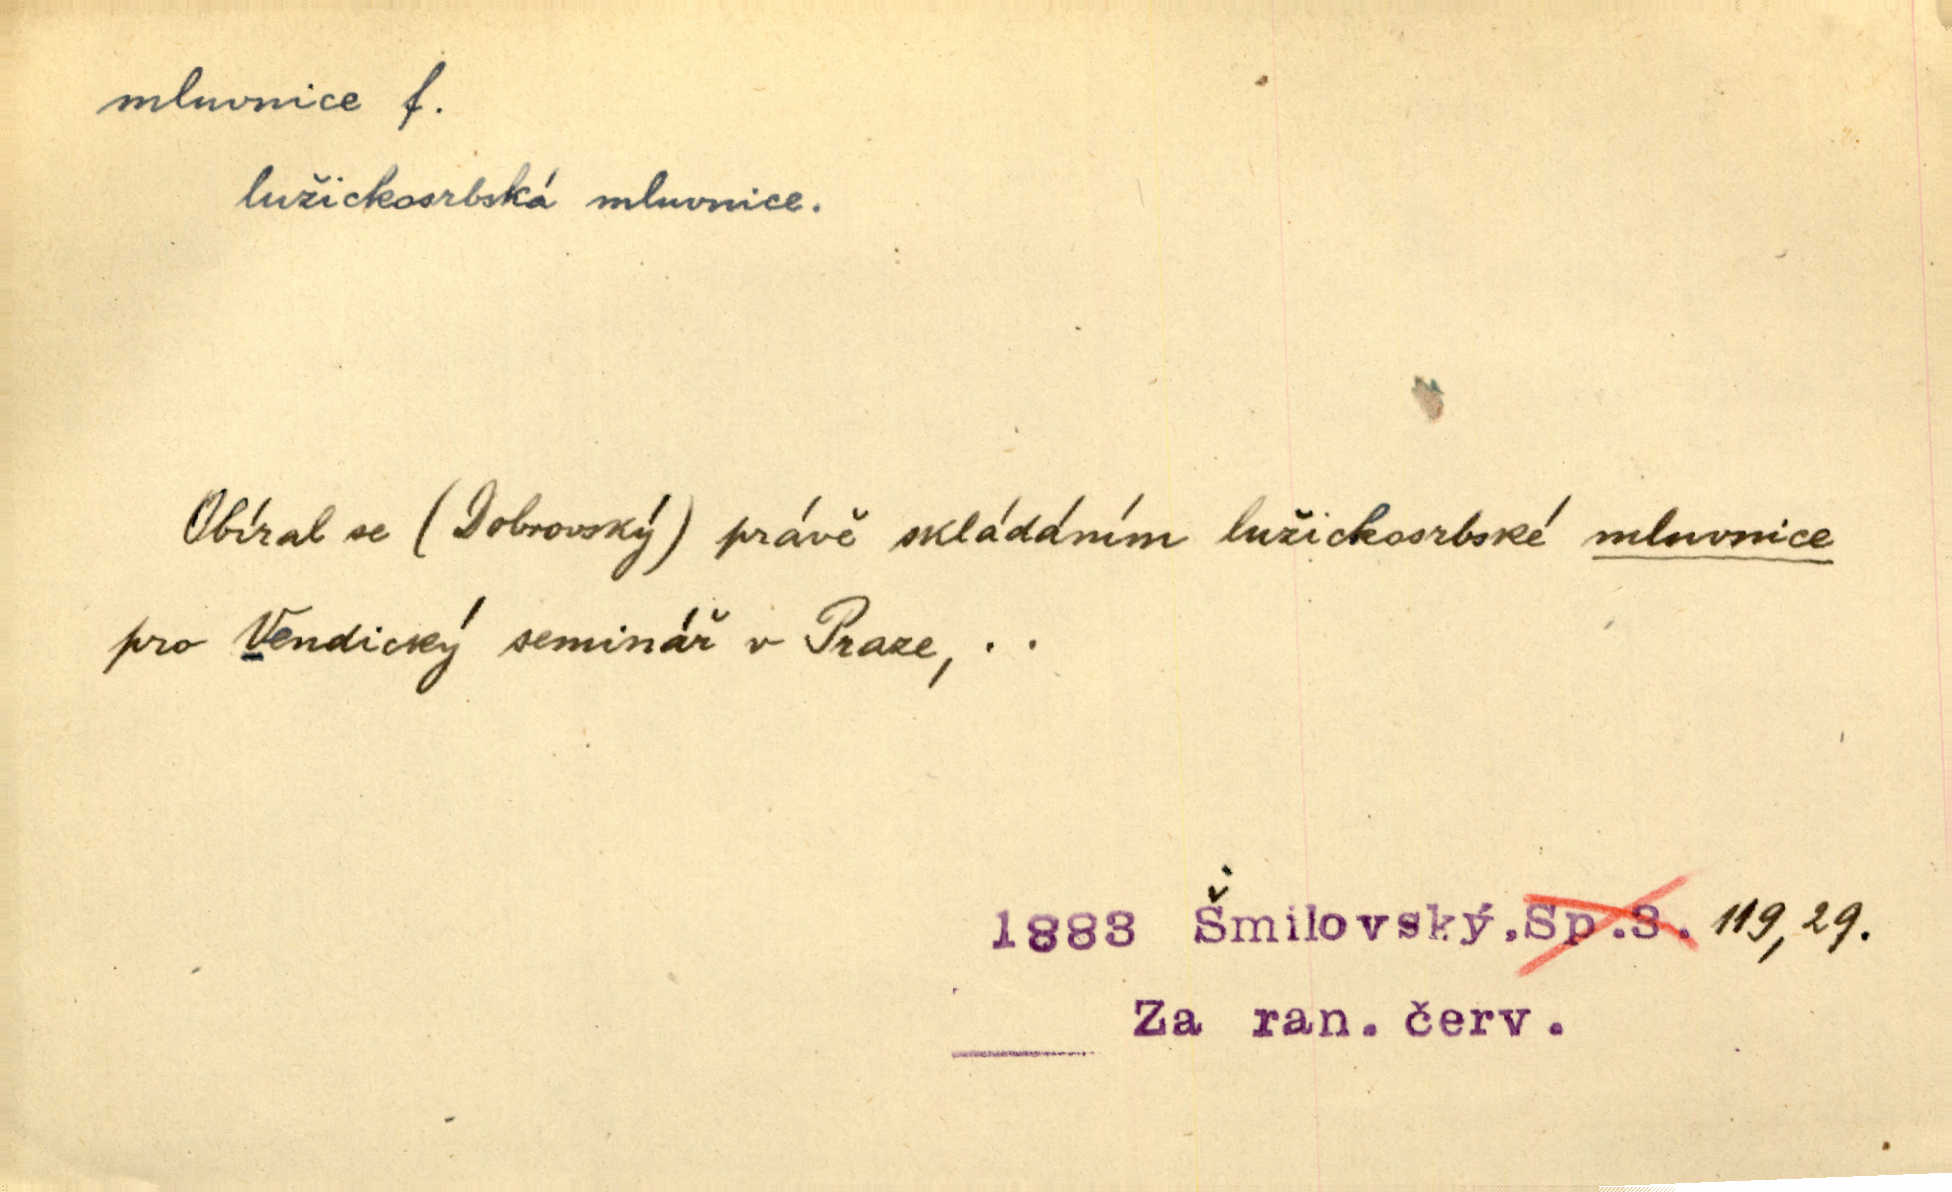 mluvnice f.
lužickosrbská mluvnice.
Obíral se (Dobrovský) právě skládáním lužickosrbské mluvnice
pro Vendický seminář v Praze, . .
1883 Šmilovský.Sp.3. 119,29.
Za ran. červ.